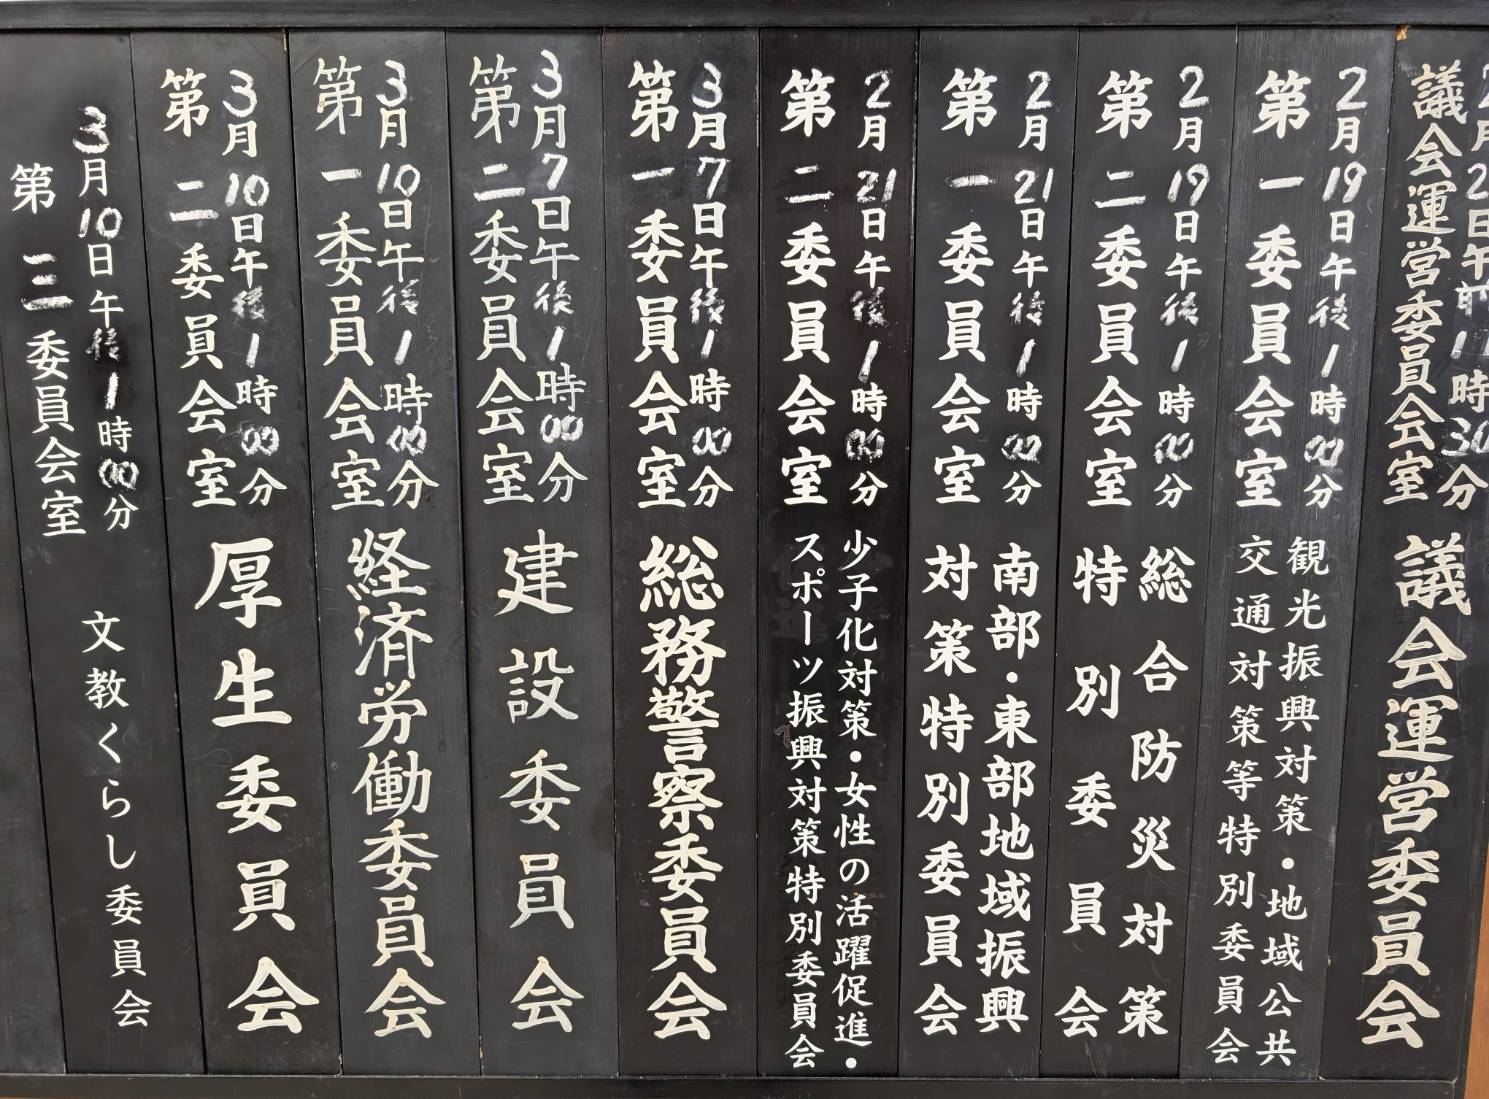 2月2日午前11時30分
議会運営委員会室
議会運営委員会
2月19日午後1時00分
第一委員会室
観光振興対策・地域公共
交通対策等特別委員会
2月19日午後1時00分
第二委員会室
総合防災対策
特別委員会
2月21日午後1時00分
第一委員会室
南部・東部地域振興
対策特別委員会
2月21日午後1時00分
第二委員会室
少子化対策・女性の活躍促進・
スポーツ振興対策特別委員会
3月7日午後1時00分
第一委員会室
総務警察委員会
3月7日午後1時00分
第二委員会室
建設委員会
3月10日午後1時00分
第一委員会室
経済労働委員会
3月10日午後1時00分
第二委員会室
厚生委員会
3月10日午後1時00分
第三委員会室
文教くらし委員会